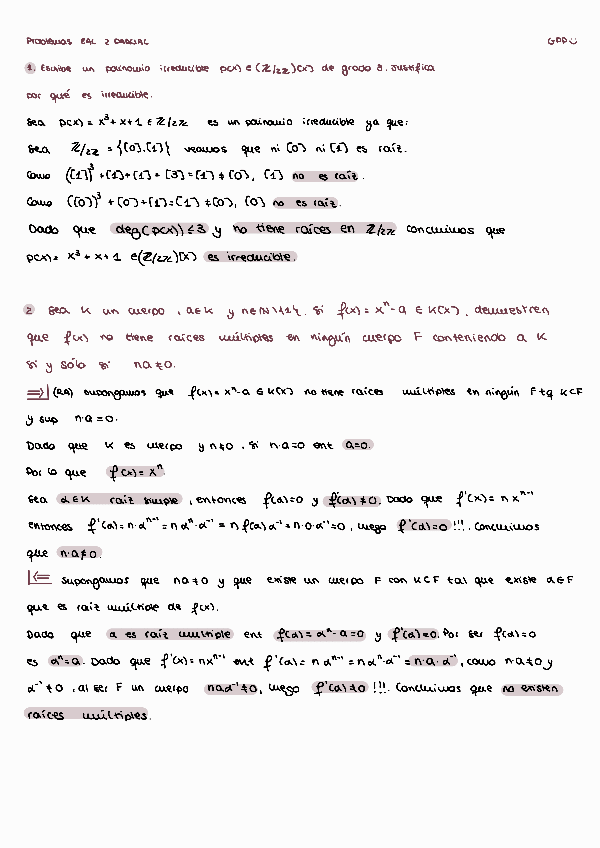 Problemas EAL 2 PARCIAL GPP
1. Escribe un polinomio irreducible p(x) ∈ (Z/2Z)[x] de grado 3. Justifica
por qué es irreducible.
Sea p(x) = x³ + x + 1 ∈ Z/2Z es un polinomio irreducible ya que:
Sea Z/2Z = {[0],[1]} veamos que ni [0] ni [1] es raíz.
Como ([1])³ + [1] + [1] = [3] = [1] ≠ [0], [1] no es raíz.
Como ([0])³ + [0] + [1] = [1] ≠ [0], [0] no es raíz.
Dado que deg(p(x)) ≤ 3 y no tiene raíces en Z/2Z concluimos que
p(x) = x³ + x + 1 ∈ (Z/2Z)[x] es irreducible.
2 Sea K un cuerpo, a∈K y n∈N\{1}. Si f(x) = xⁿ-a ∈ K[x], demuestren
que f(x) no tiene raíces múltiples en ningún cuerpo F conteniendo a K
si y sólo si na≠0.
⇒| (RA) Supongamos que f(x) = xⁿ-a ∈ K[x] no tiene raíces múltiples en ningún F tq K⊂F
y sup n·a = 0.
Dado que K es cuerpo y n≠0, si n·a=0 ent a=0.
Por lo que f(x) = xⁿ.
Sea α∈K raíz simple, entonces f(α)=0 y f'(α)≠0. Dado que f'(x) = n xⁿ⁻¹
entonces f'(α) = n·αⁿ⁻¹ = n αⁿ·α⁻¹ = n f(α) α⁻¹ = n·0·α⁻¹ = 0, luego f'(α)=0 !!!. Concluimos
que n·a≠0.
|⇐ Supongamos que na≠0 y que existe un cuerpo F con K⊂F tal que existe α∈F
que es raíz múltiple de f(x).
Dado que α es raíz múltiple ent f(α) = αⁿ-a = 0 y f'(α)=0. Por ser f(α)=0
es αⁿ=a. Dado que f'(x) = nxⁿ⁻¹ ent f'(α) = n αⁿ⁻¹ = nαⁿ·α⁻¹ = n·a·α⁻¹, como n·a≠0 y
α⁻¹≠0, al ser F un cuerpo naα⁻¹≠0, luego f'(α)≠0 !!!. Concluimos que no existen
raíces múltiples.